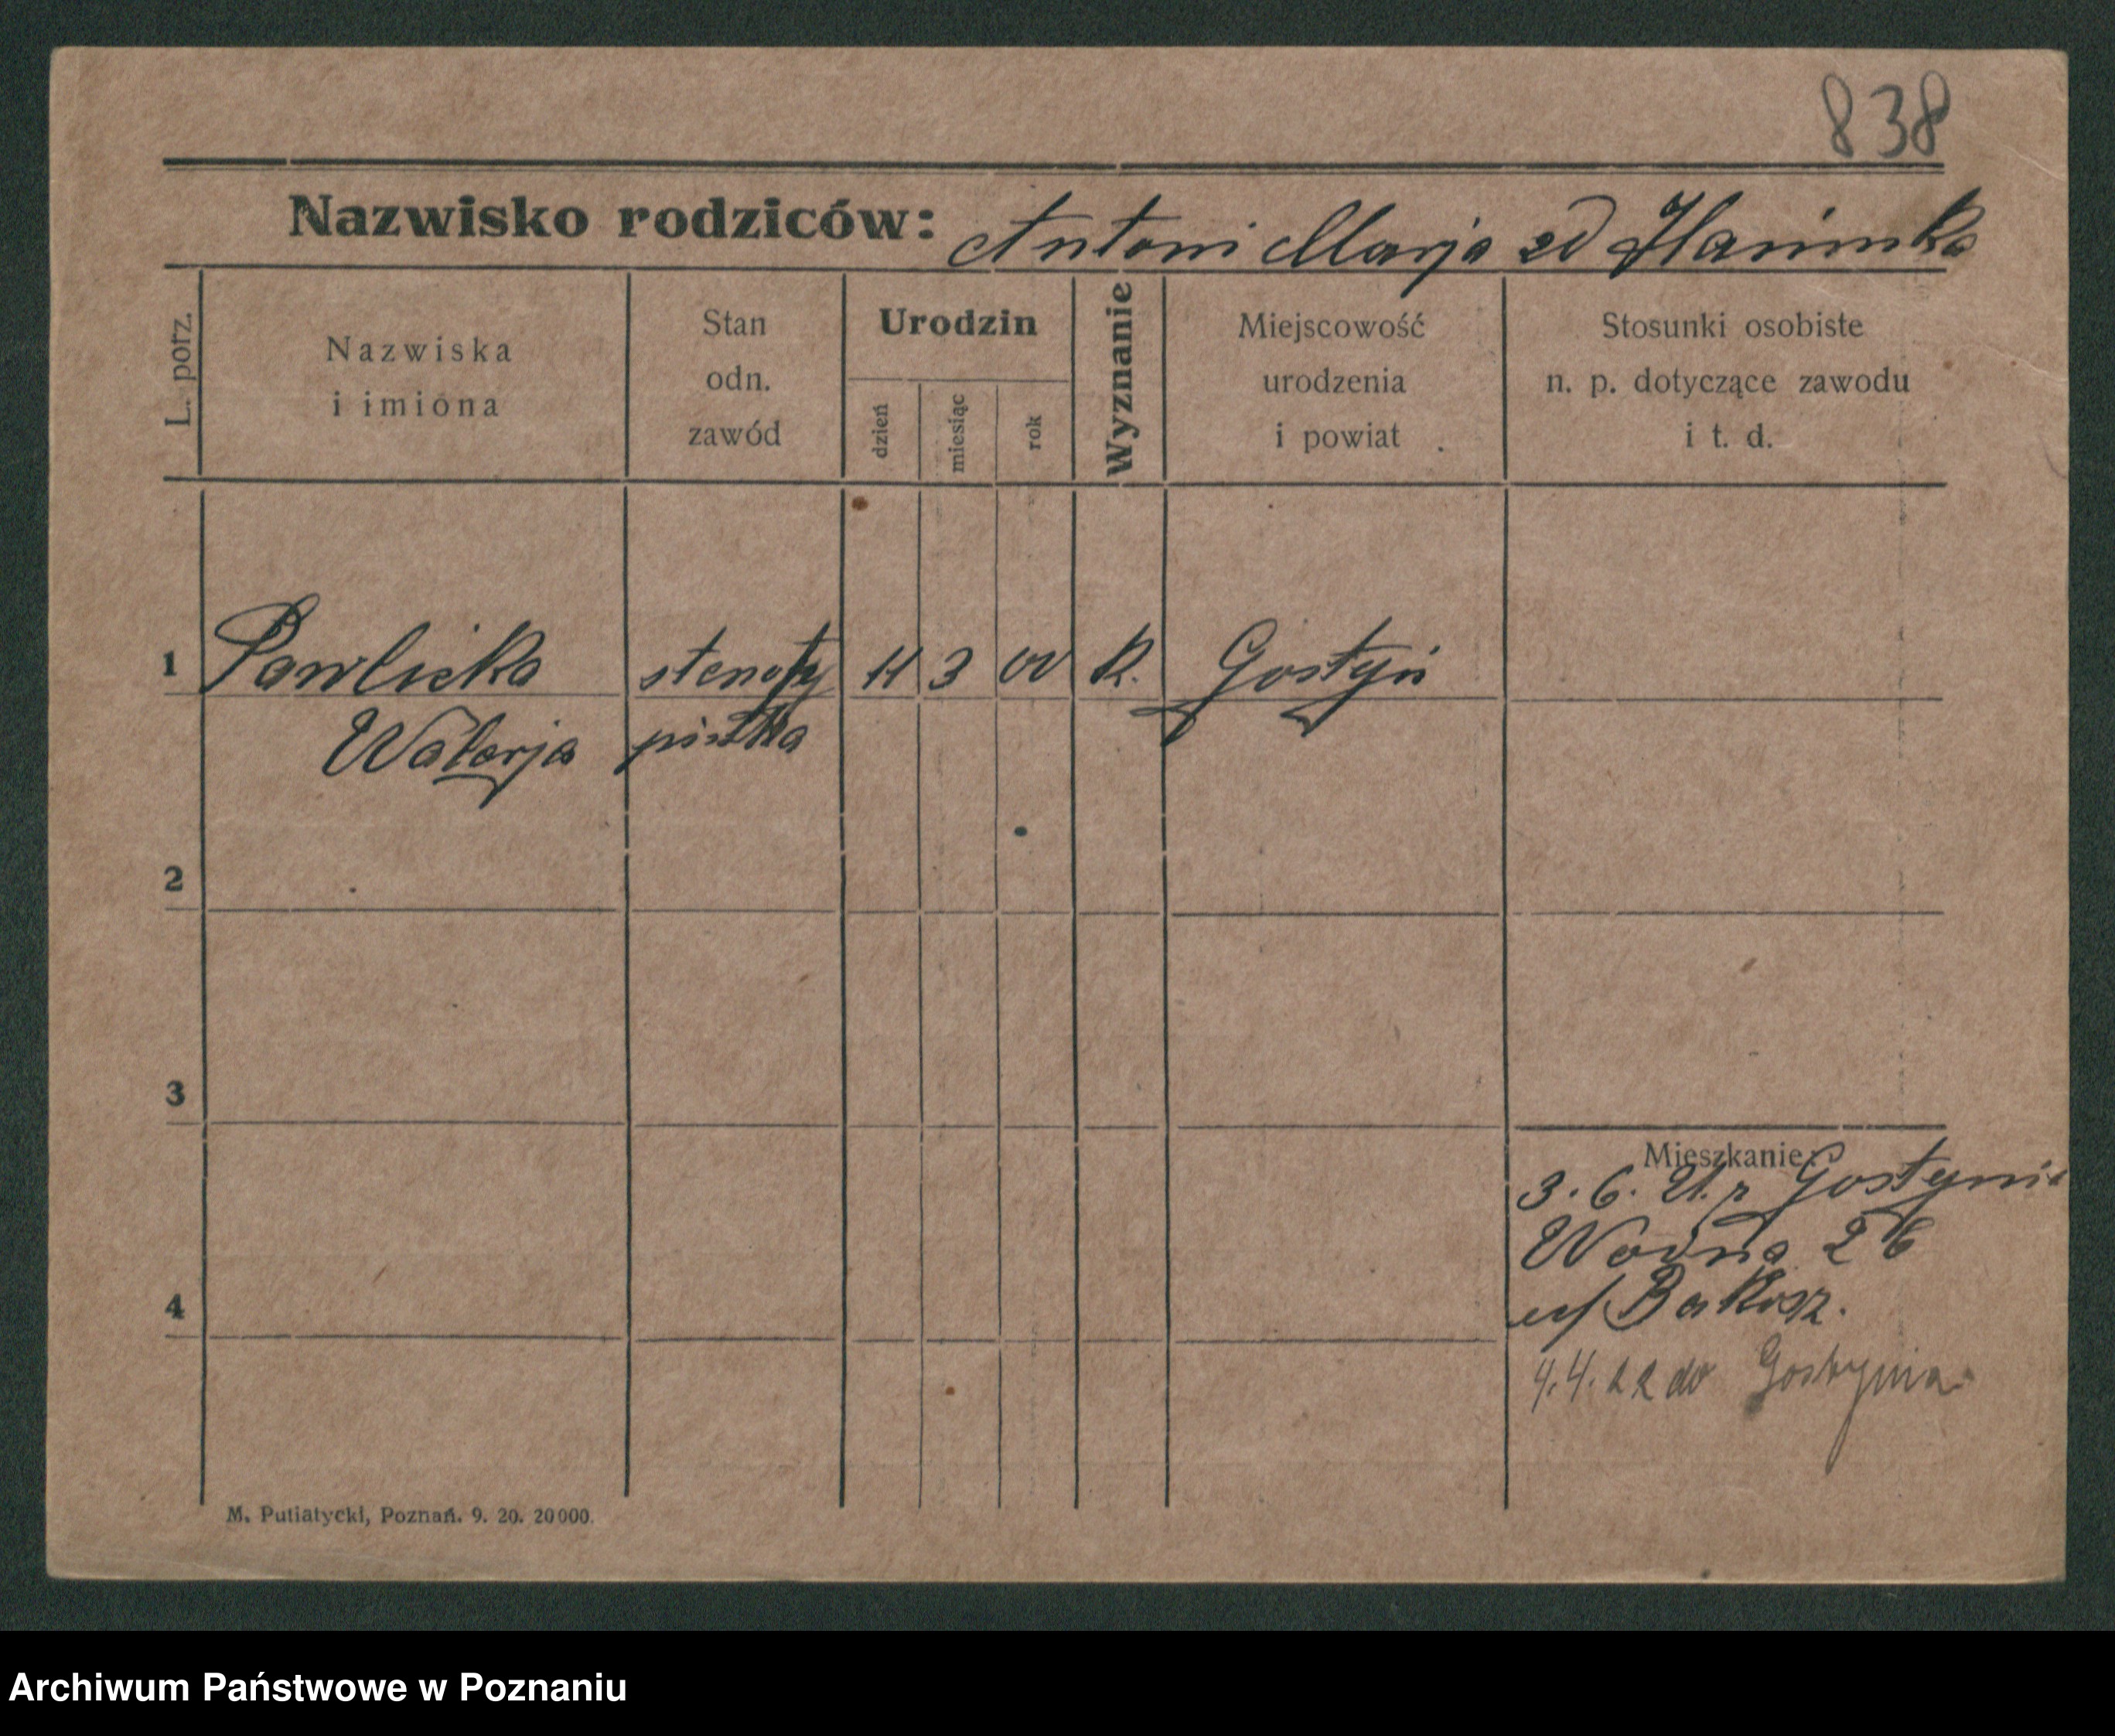 838
Nazwisko rodziców: Antoni Marja zd
L. porz.
Nazwiska
i imiona
Stan
odn.
zawód
Urodzin
dzień
miesiąc
rok
Wyznanie
Miejscowość
urodzenia
i powiat
Stosunki osobiste
n. p. dotyczące zawodu
i t. d.
1 Pawlicka stenoty 3 00 K. Gostyń
Walerja pistka
2
3
4
Mieszkanie:
3. 6. 21. z Gostynia
Wodna 26
Bartkosz.
4.4.22 do Gostynia
M. Putiatycki, Poznań. 9. 20. 20000.
Archiwum Państwowe w Poznaniu